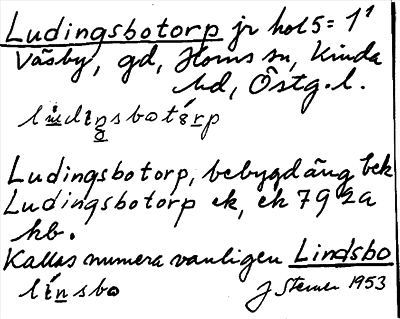 Ludingsbotorp jr hol5= 1¹
Väsby, gd, Horns sn, Kinda
hd, Östg.l.
Ludingsbotorp, bebyggd äng bek
Ludingsbotorp ek, ek 79 2a
hb.
Kallas numera vanligen Lindsbo
línsbo
J Stener 1953